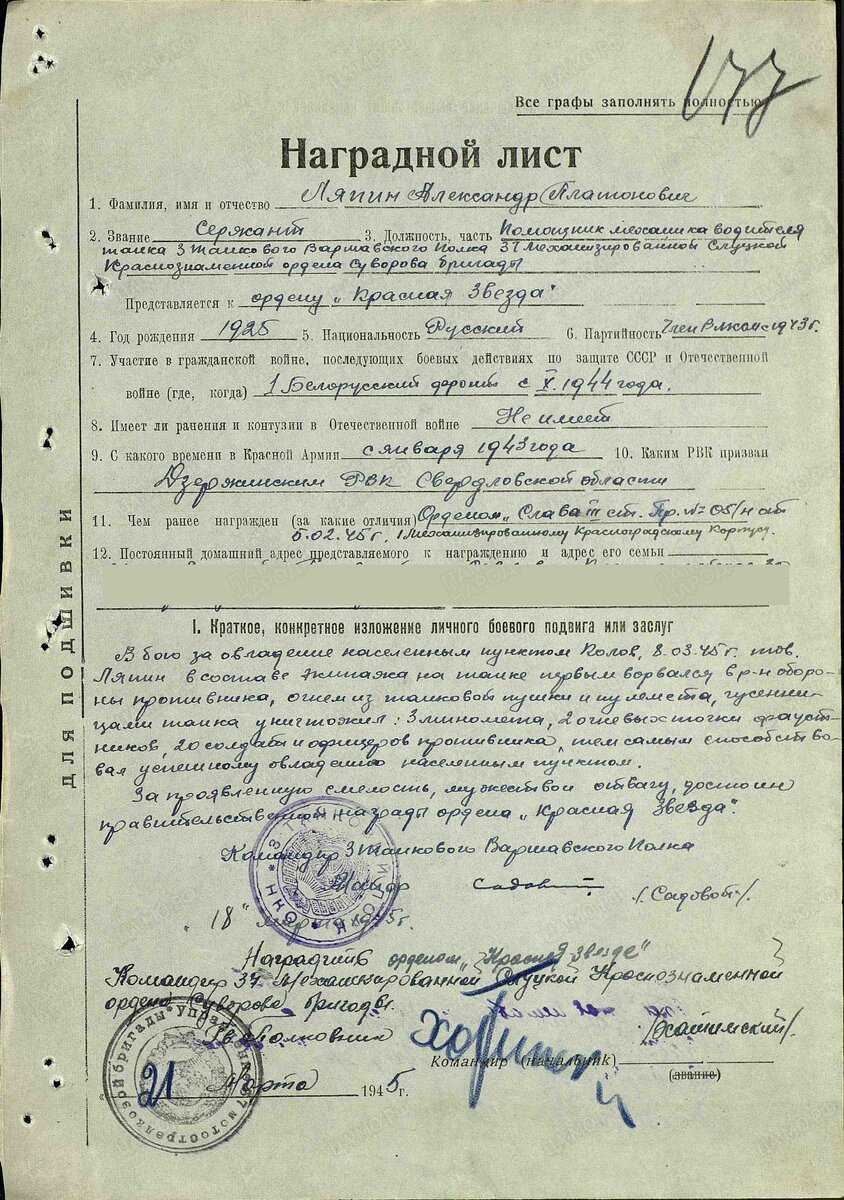 177
Все графы заполнять полностью
Наградной лист
1. Фамилия, имя и отчество Ляпин Александр Платонович
2. Звание Сержант 3. Должность, часть Помощник механика водителя
танка 3 Танкового Варшавского Полка 37 Механизированной Слуцкой
Краснознаменной ордена Суворова бригады
Представляется к ордену „Красная Звезда"
4. Год рождения 1925 5. Национальность Русский 6. Партийность Член ВЛКСМ с 1943г.
7. Участие в гражданской войне, последующих боевых действиях по защите СССР и Отечественной
войне (где, когда) 1 Белорусский фронт с X. 1944 года.
8. Имеет ли ранения и контузии в Отечественной войне Не имеет
9. С какого времени в Красной Армии с января 1943 года 10. Каким РВК призван
Дзержинским РВК Свердловской области
11. Чем ранее награжден (за какие отличия) Орденом „Слава III ст. Пр. № 05/н от
5.02.45г. 1 Механизированному Красноградскому Корпусу.
12. Постоянный домашний адрес представляемого к награждению и адрес его семьи
I. Краткое, конкретное изложение личного боевого подвига или заслуг
В бою за овладение населенным пунктом Колов, 8.03.45г. тов.
Ляпин в составе экипажа на танке первым ворвался в р-н оборо-
ны противника, огнем из танковой пушки и пулемета, гусени-
цами танка уничтожил: 3 миномета, 2 огневых точки фауст-
ников, 20 солдат и офицеров противника, тем самым способство-
вал успешному овладению населенным пунктом.
За проявленную смелость, мужество и отвагу, достоин
правительственной награды ордена „Красная Звезда".
Командир 3 Танкового Варшавского Полка
Майор Садовый /Садовой/.
"18" марта 1945г.
Наградить орденом „Красная Звезда"
Командир 37 Механизированной Слуцкой Краснознаменной
ордена Суворова бригады.
Полковник /Хотимский/.
Командир (начальник)
(звание)
21 Марта 1945г.
ДЛЯ ПОДШИВКИ